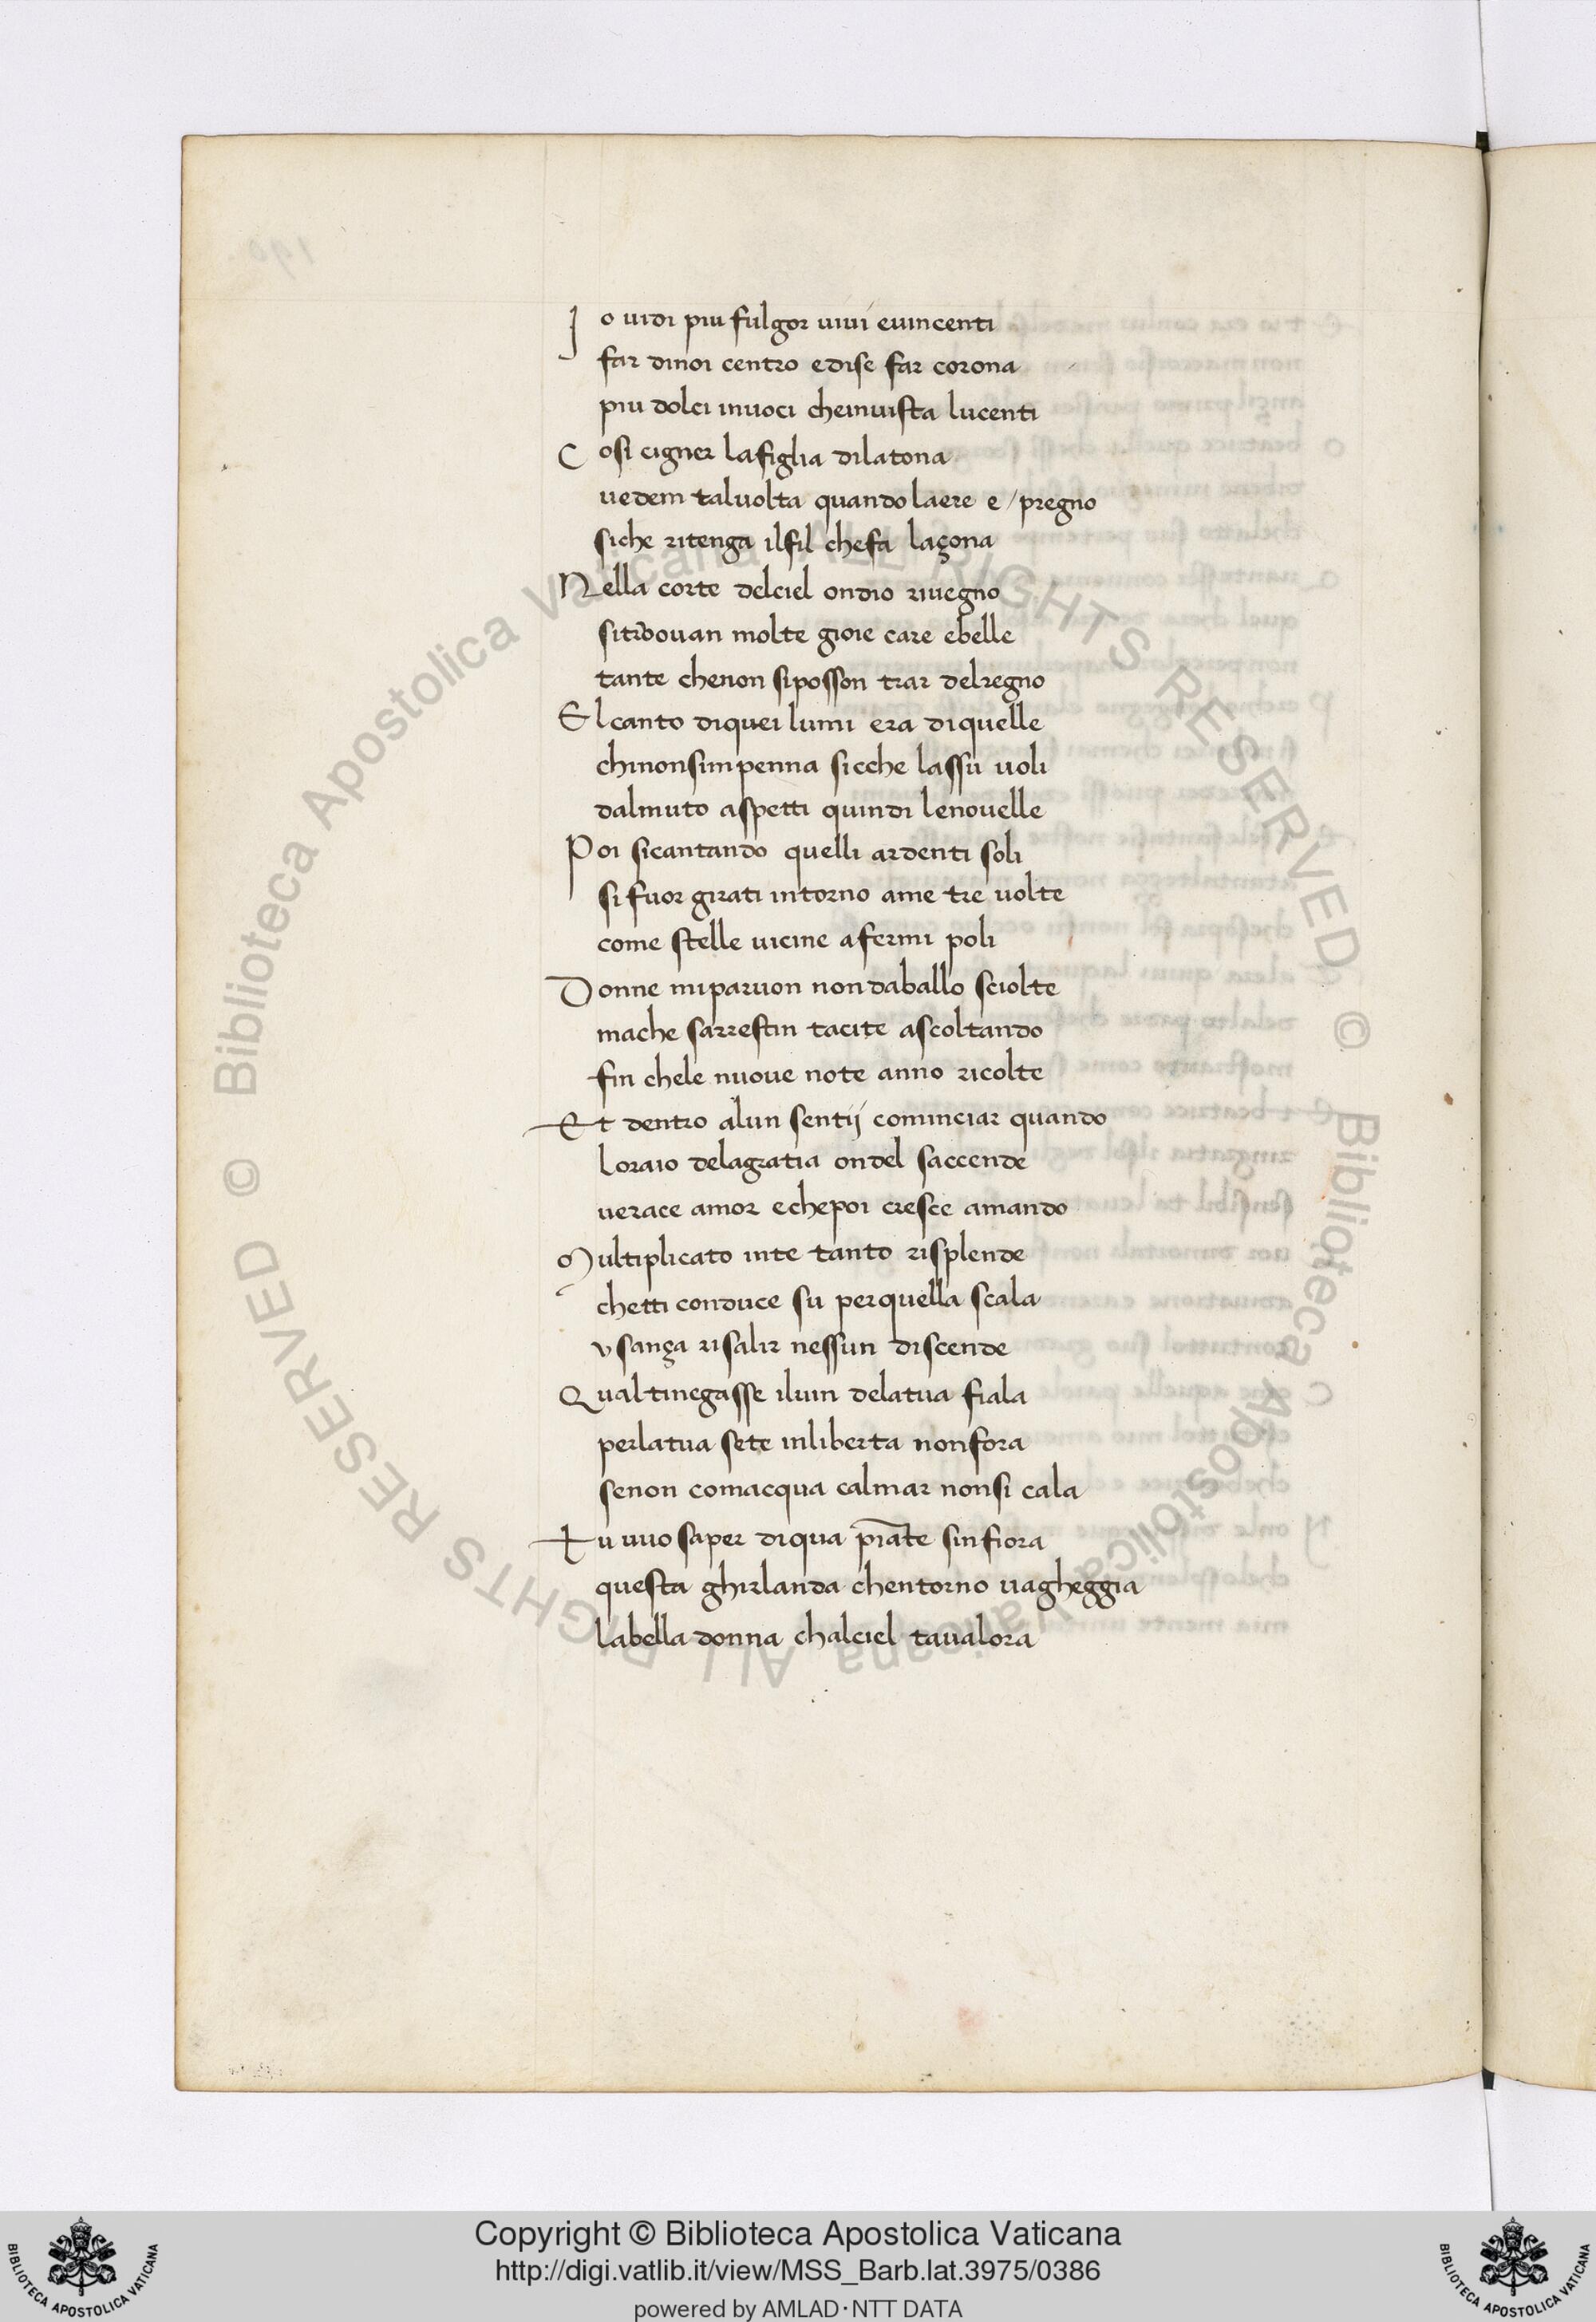 Io uidi piu fulgor uiui euincenti
far dinoi centro edise far corona
piu dolci inuoci cheinuista lucenti
Cosi cigner lafiglia dilatona
uedem taluolta quando laere e / pregno
siche ritenga ilfil chefa laçona
Nella corte delciel ondio riuegno
sitrouan molte gioie care ebelle
tante chenon siposson trar delregno
El canto diquei lumi era diquelle
chinonsimpenna sicche lassu uoli
dalmuto aspetti quindi lenouelle
Poi sicantando quelli ardenti soli
si fuor girati intorno ame tre uolte
come stelle uicine afermi poli
Donne miparuon nondaballo sciolte
mache sarrestin tacite ascoltando
fin chele nuoue note anno ricolte
Et dentro alun sentij cominciar quando
loraio delagratia ondel saccende
uerace amor echepoi cresce amando
Multiplicato inte tanto risplende
chetti conduce su perquella scala
vsança risalir nessun discende
Qualtinegasse iluin delatua fiala
perlatua sete inliberta nonfora
senon comacqua calmar nonsi cala
Tu uuo saper diqua piāte sinfiora
questa ghirlanda chentorno uagheggia
labella donna chalciel taualora
© Biblioteca Apostolica Vaticana ALL RIGHTS RESERVED
© Biblioteca Apostolica Vaticana ALL RIGHTS RESERVED
Copyright © Biblioteca Apostolica Vaticana
http://digi.vatlib.it/view/MSS_Barb.lat.3975/0386
powered by AMLAD·NTT DATA
BIBLIOTECA APOSTOLICA VATICANA
BIBLIOTECA APOSTOLICA VATICANA